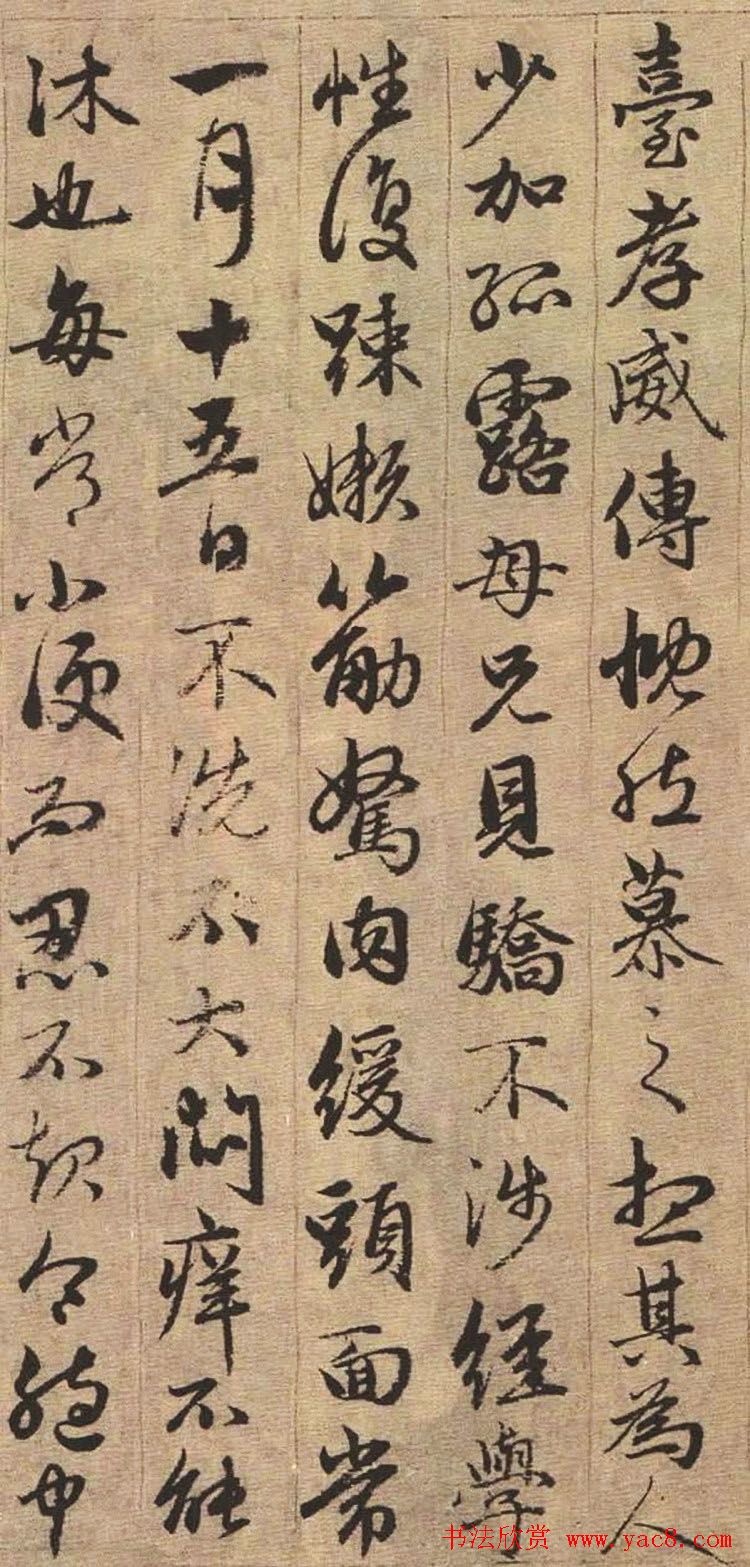 臺孝威傳慨然慕之想其為人
少加孤露母兄見驕不涉經學
性復踈嬾筋駑肉緩頭面常
一月十五日不洗不大悶癢不能
沐也每常小便而忍不起令胞中
书法欣赏 www.yac8.com